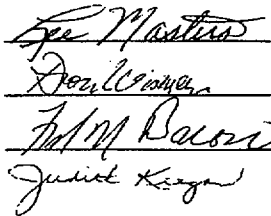 Lee Masters
Don Wisman
M Bacon
Judith Keegan